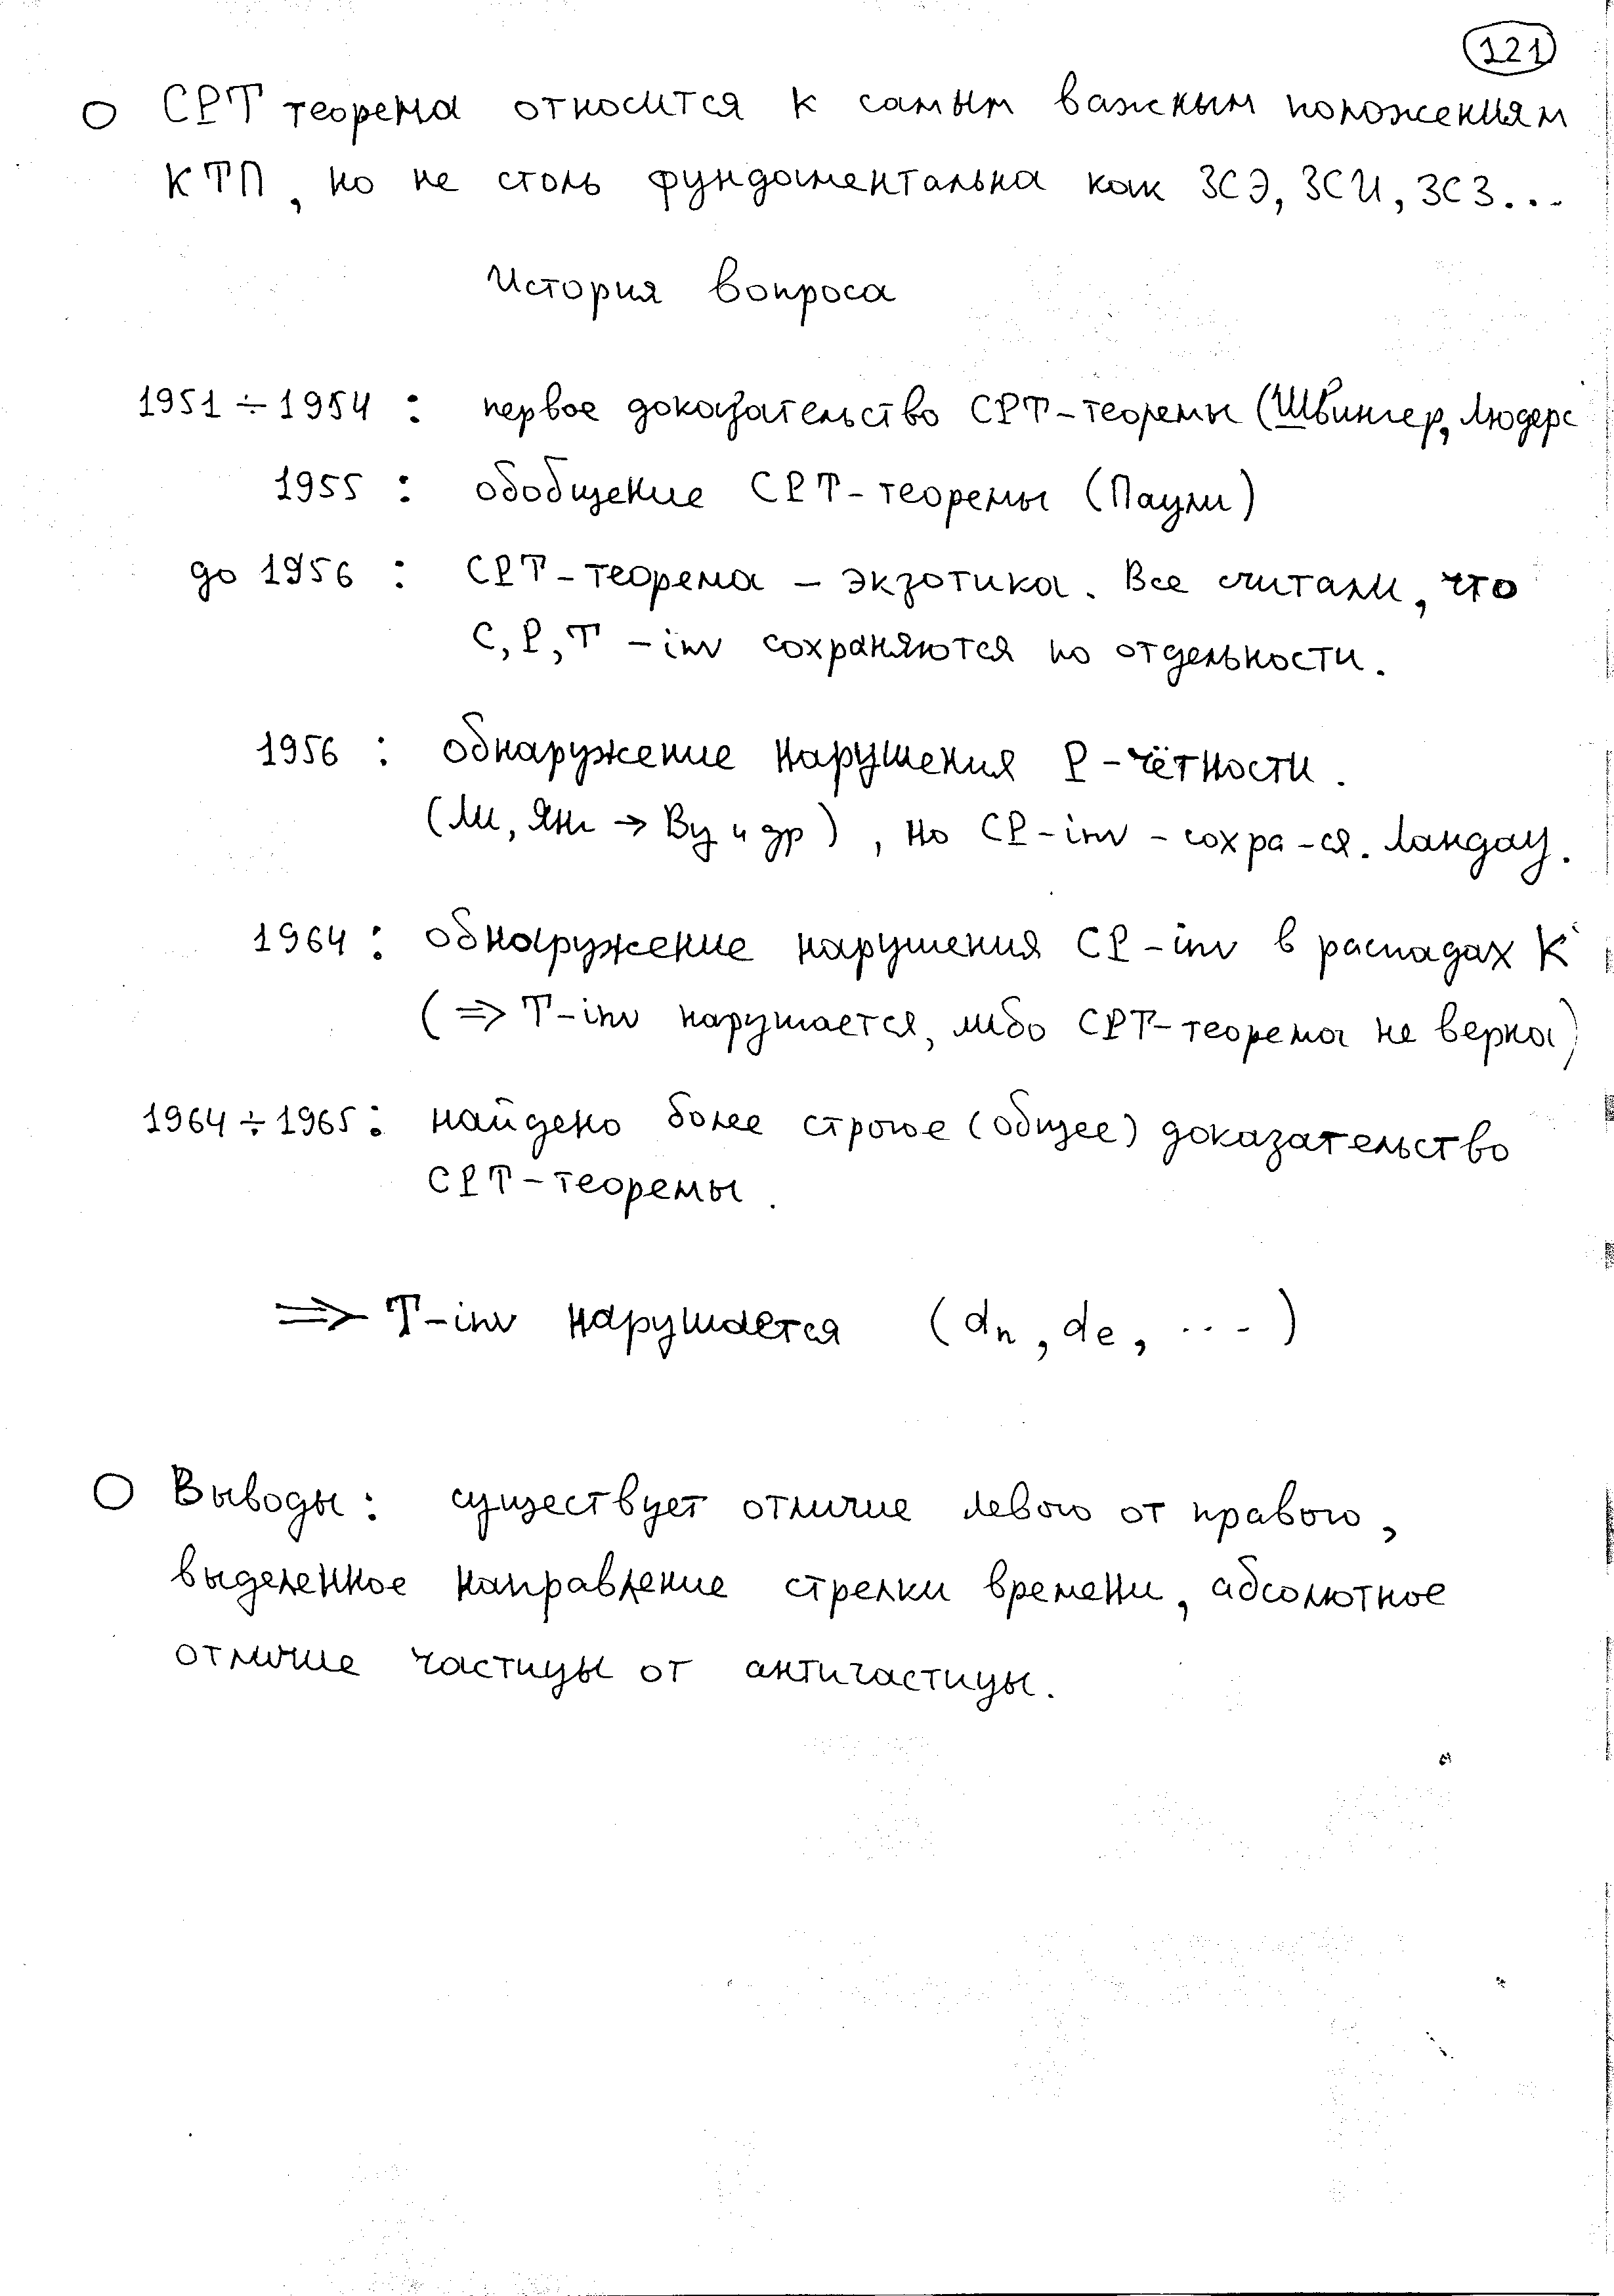 121
О СРТ теорема относится к самым важным положениям
КТП, но не столь фундаментальна как ЗСЭ, ЗСИ, ЗСЗ...
История вопроса
1951 ÷ 1954 : первое доказательство СРТ-теоремы (Швингер, Людерс
1955 : обобщение СРТ-теоремы (Паули)
до 1956 : СРТ-теорема – экзотика. Все считали, что
С, Р, Т -inv сохраняются по отдельности.
1956 : обнаружение нарушения Р-чётности.
(Ли, Янг → Ву и др), но СР-inv - сохра-ся. Ландау.
1964 : обнаружение нарушения СР-inv в распадах К
(⇒ Т-inv нарушается, либо СРТ-теорема не верна)
1964 ÷ 1965 : найдено более строгое (общее) доказательство
СРТ-теоремы.
⇒ Т-inv нарушается (dn, de, ...)
О Выводы: существует отличие левого от правого,
выделенное направление стрелки времени, абсолютное
отличие частицы от античастицы.